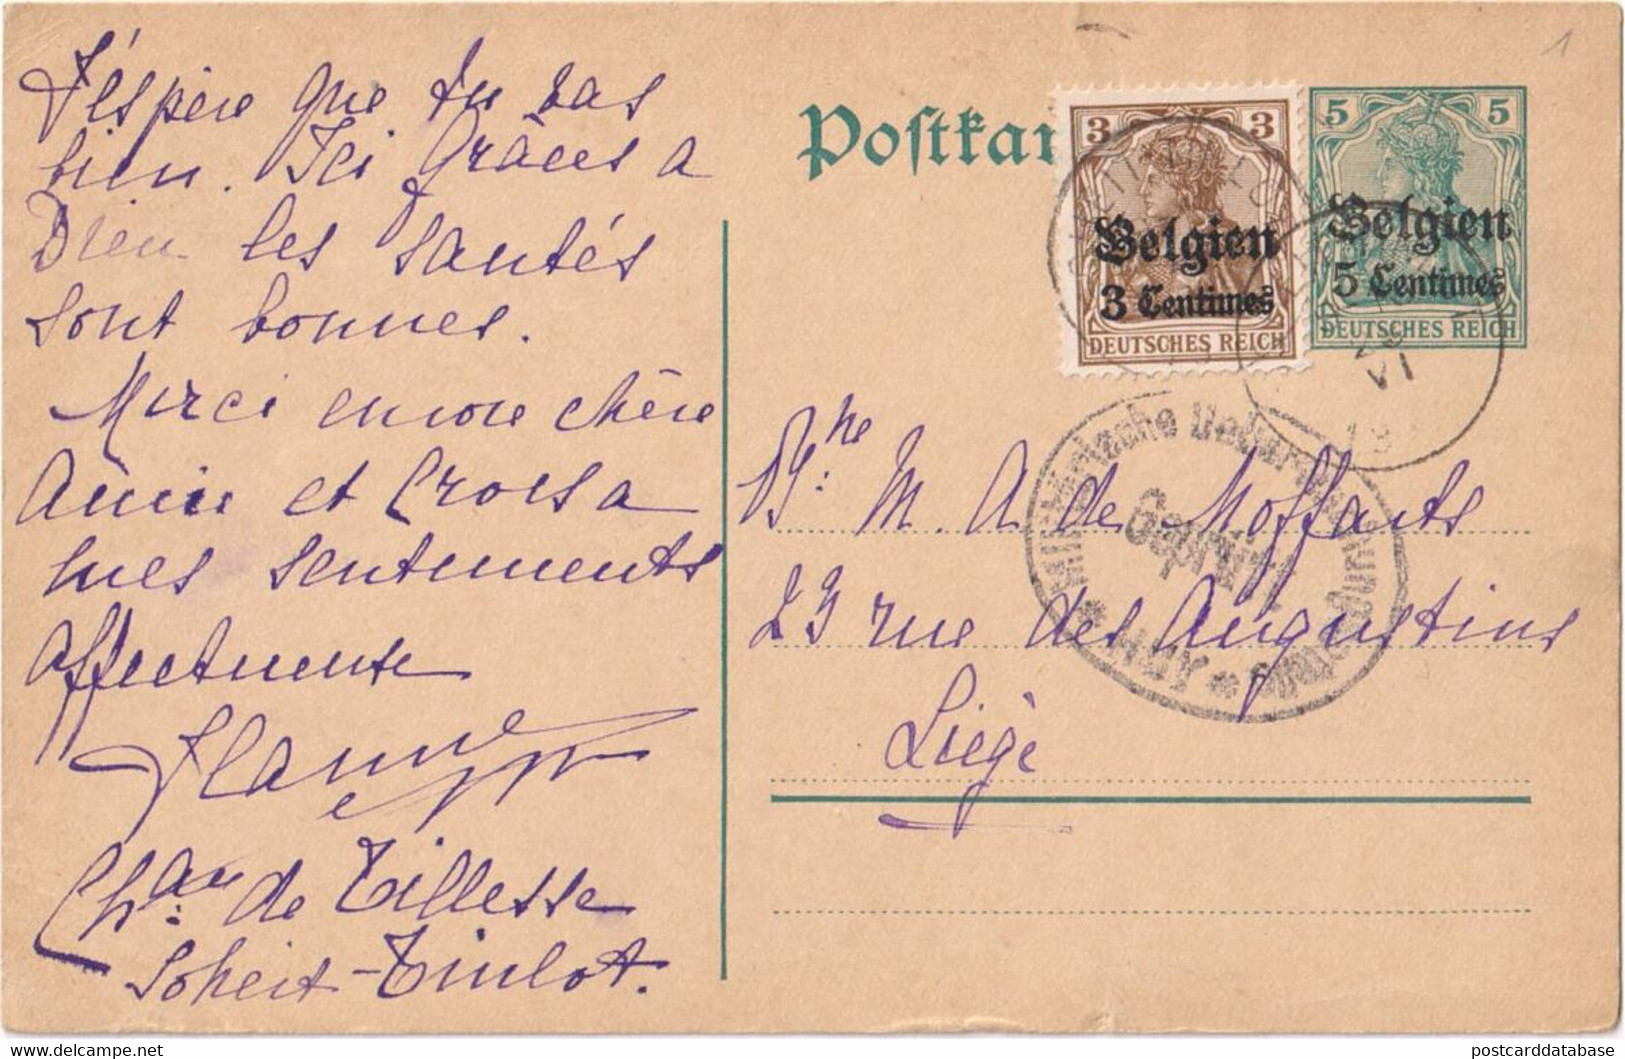 J'espère que tu vas
bien. Ici grâces a
Dieu les santés
sont bonnes.
Merci encore chère
Amie et crois a
mes sentiments
affectueux
Chau: de Tillesse
Soheit-Tinlot.
Postkar
3 3
Belgien
3 Centimes
DEUTSCHES REICH
5 5
Belgien
5 Centimes
DEUTSCHES REICH
VI
Militärische Ueberwachungsstelle
* HUY *
Geprüft
M. A de Moffarts
23 rue des Augustins
Liège
1
delcampe.net
postcarddatabase